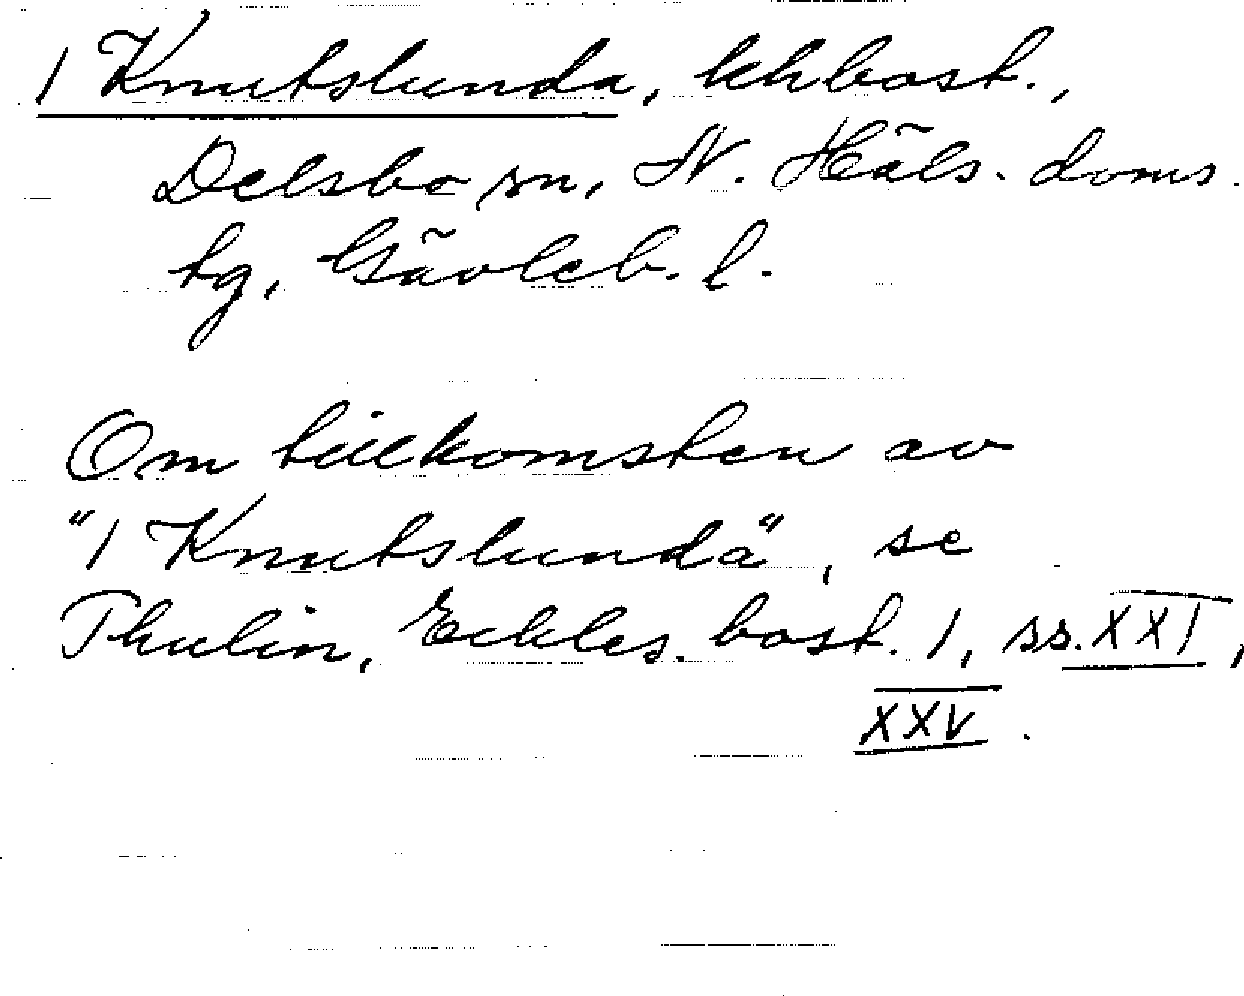 1 Knutslunda, khbost.,
Delsbo sn, N. Häls. doms.
tg, Gävleb. l.
Om tillkomsten av
"1 Knutslunda", se
Thulin, Eckles. bost. 1, ss. XXI,
XXV.